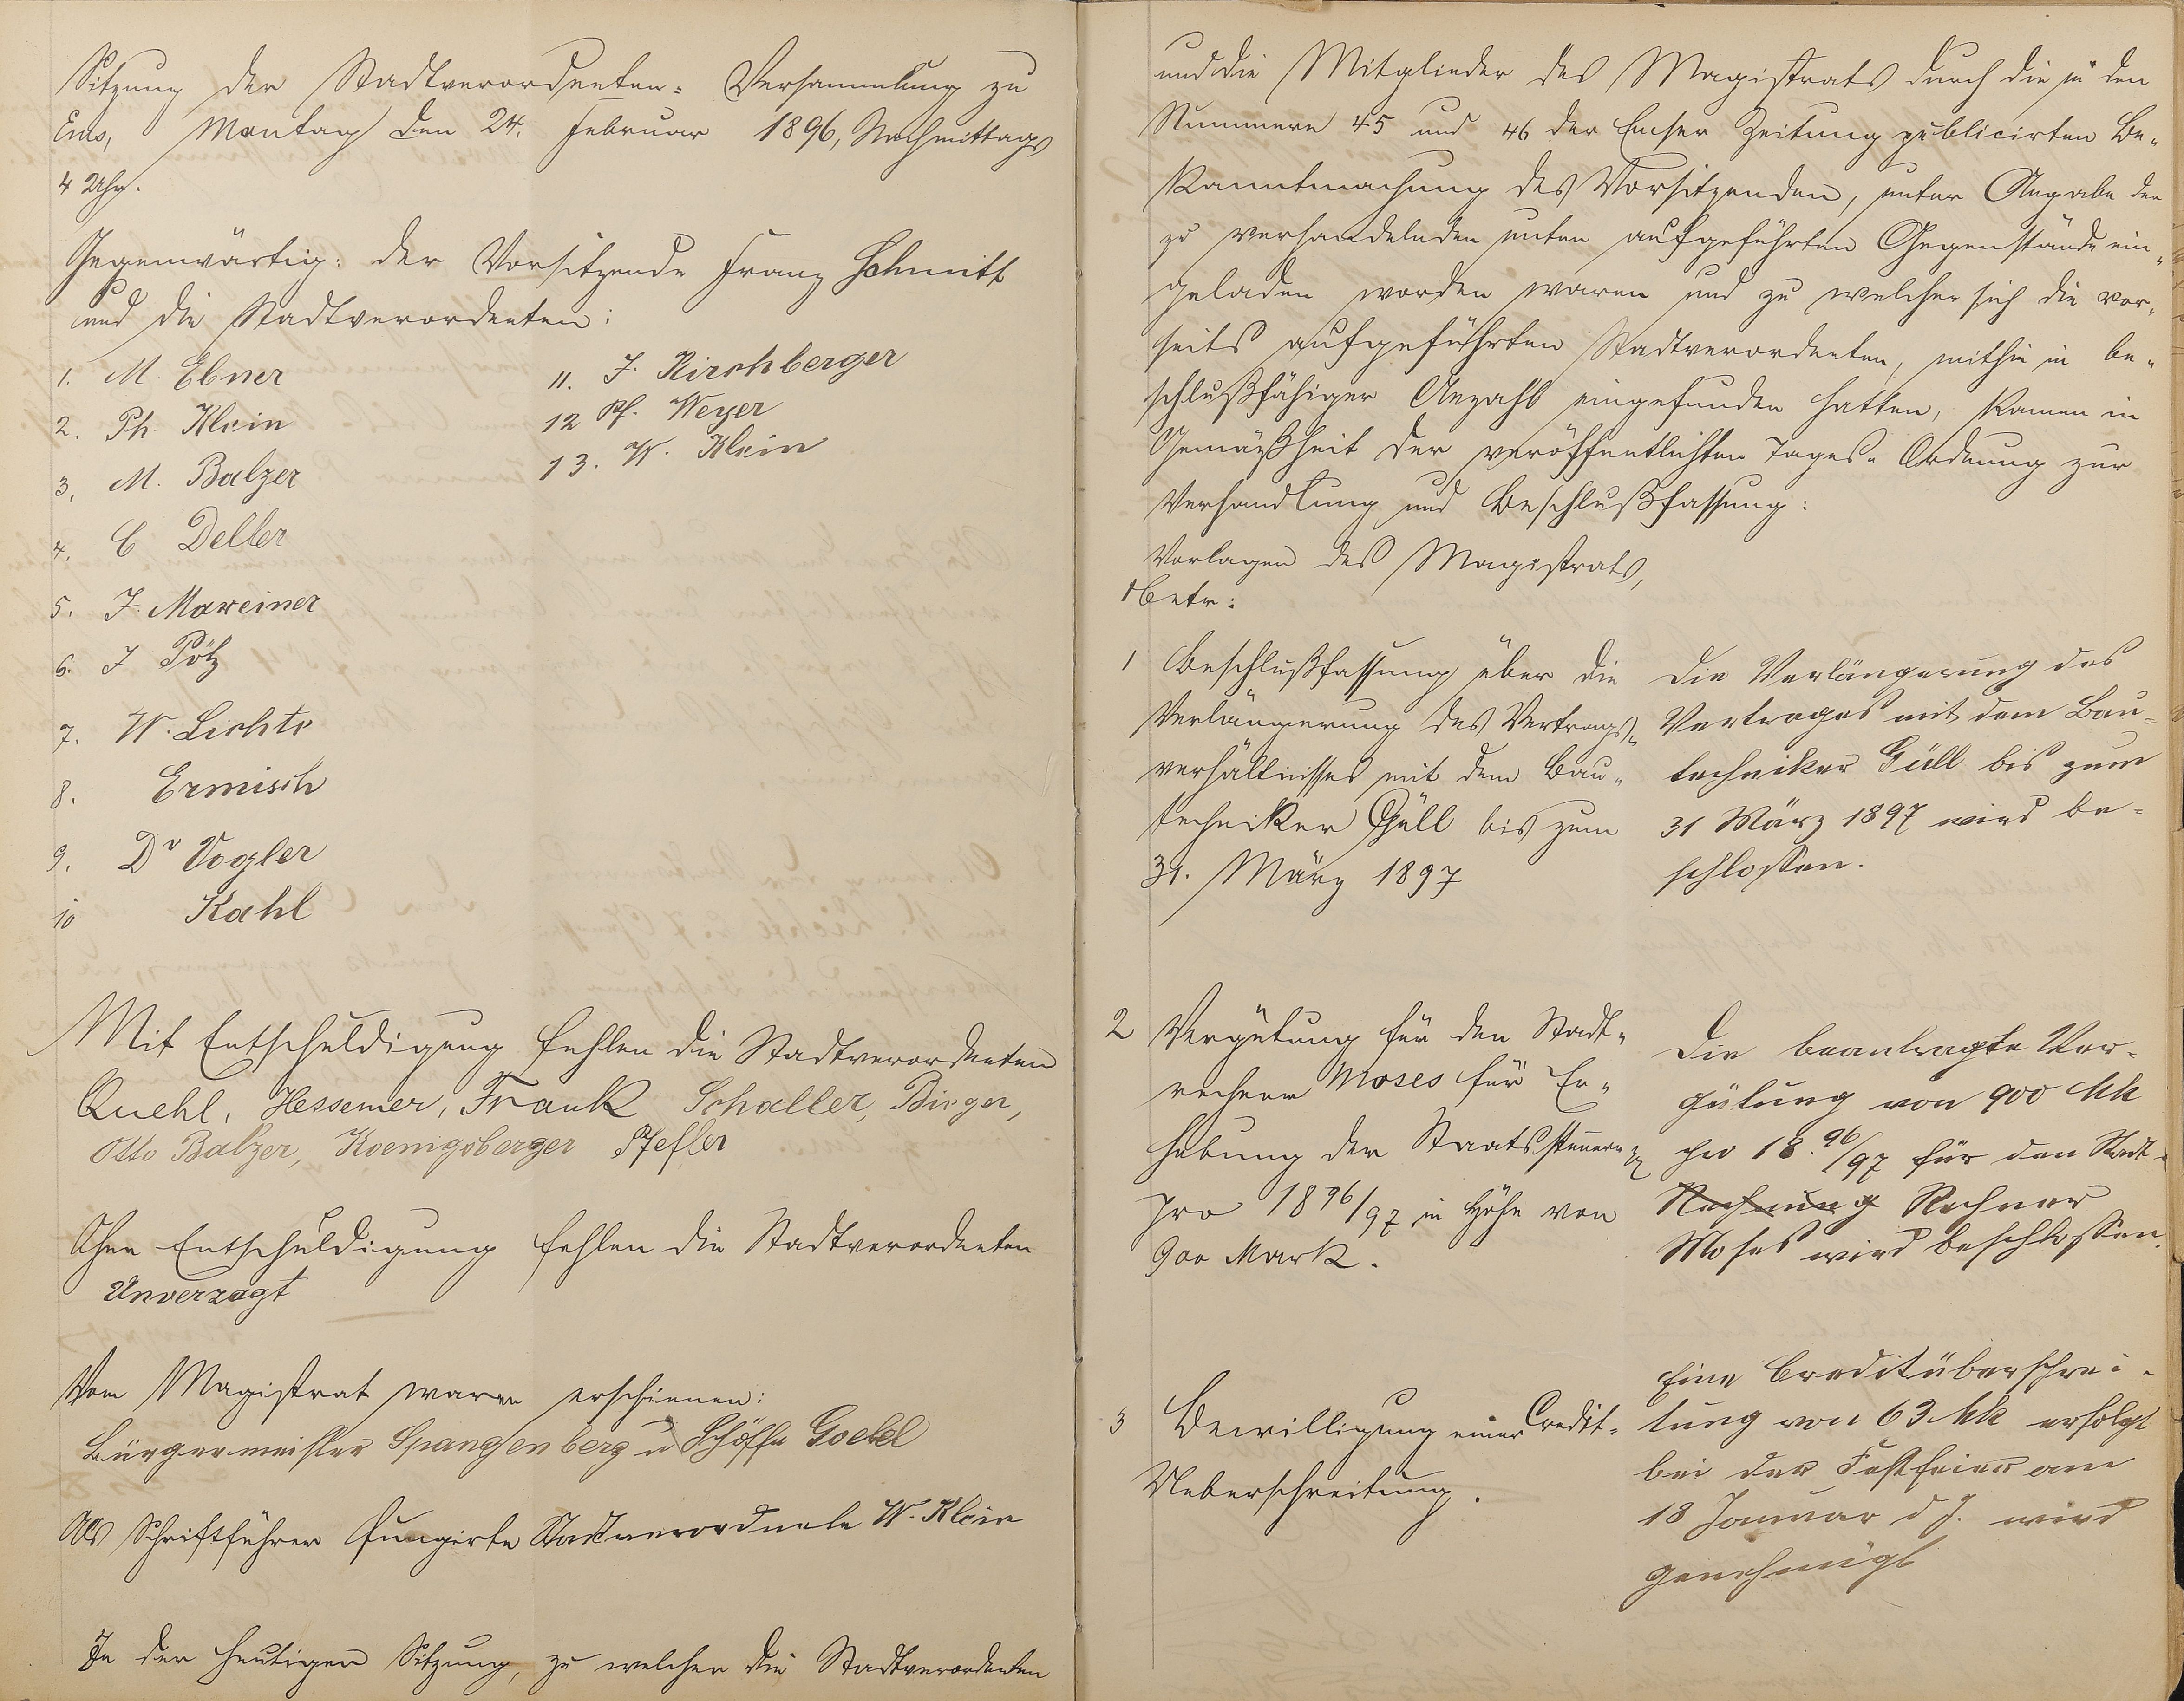 Sitzung der Stadtverordneten- Versammlung zu
Ems, Montag den 24. Februar 1896, Nachmittags
4 Uhr.
Gegenwärtig: der Vorsitzende Franz Schmitt
und die Stadtverordneten:
1. M. Ebner
2. Ph. Klein
3. M. Balzer
4. C Deller
5. J. Maxeiner
6. J Pötz
7. W. Lichte
8. Ermisch
9. Dr Vogler
10 Kahl
11. J. Kirchberger
12 Ph. Weyer
13. W. Klein
Mit Entschuldigung fehlen die Stadtverordneten
Quehl, Hessemer, Frank Schaller, Binger,
Otto Balzer, Koenigsberger Pfeffer
Ohne Entschuldigung fehlen die Stadtverordneten
Unverzagt
Vom Magistrat waren erschienen:
Bürgermeister Spangenberg u Schöffe Goebel
Als Schriftführer fungirte Stadtverordnete W. Klein
In der heutigen Sitzung, zu welcher die Stadtverordneten
und die Mitglieder des Magistrats durch die in den
Nummern 45 und 46 der Emser Zeitung publicirten Be-
kanntmachung des Vorsitzenden, unter Angabe der
zu verhandelnden unten aufgeführten Gegenstände ein-
geladen worden waren und zu welcher sich die vor-
seits aufgeführten Stadtverordneten, mithin in be-
schlußfähiger Anzahl eingefunden hatten, kamen in
Gemäßheit der veröffentlichten Tages- Ordnung zur
Verhandlung und Beschlußfassung:
Vorlagen des Magistrats,
betr:
1 Beschlußfassung über die
Verlängerung des Vertrags-
verhältnisses mit dem Bau-
techniker Güll bis zum
31. März 1897
Die Verlängerung des
Vertrages mit dem Bau-
techniker Güll bis zum
31 März 1897 wird be-
schlossen.
2 Vergütung für den Stadt-
rechner Moses für Er-
hebung der Staatssteuern
pro 1896/97 in Höhe von
900 Mark.
Die beantragte Ver-
gütung von 900 Mk
pro 18.96/97 für den Stadt-
Rechnung Rechner
Moses wird beschlossen.
3 Bewilligung einer Credit-
Ueberschreitung.
Eine Creditüberschrei-
tung von 63 Mk erfolgt
bei der Festfeier am
18 Januar d J. wird
genehmigt